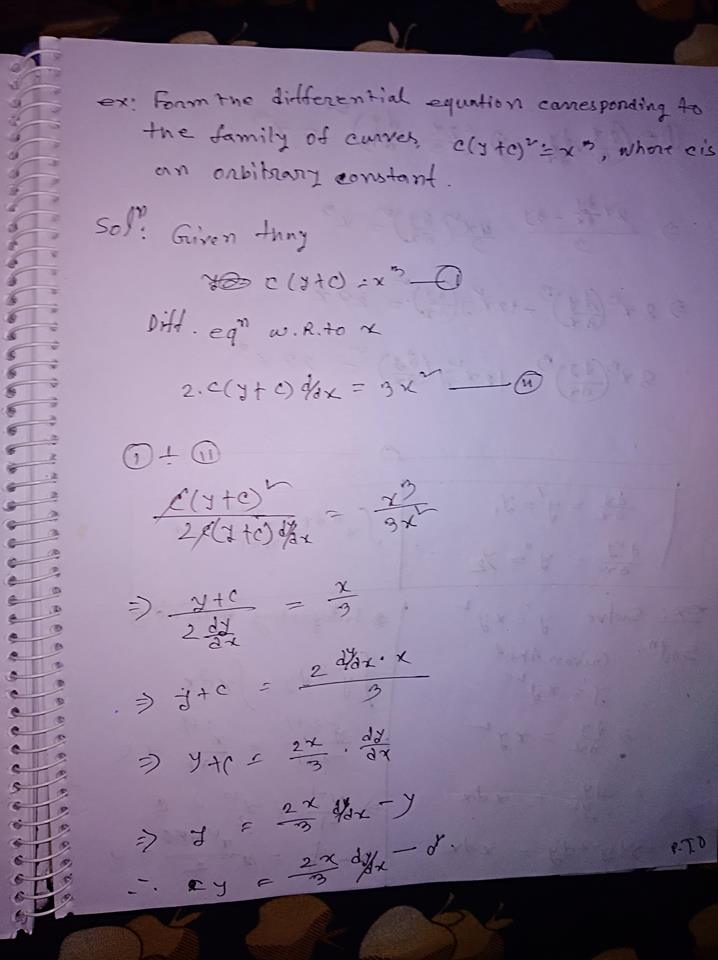 ex: Form the differential equation corresponding to
the family of curves, c(y+c)² = x³, where c is
an orbitrary constant.
Solⁿ: Given that
c(y+c) = x³ — (I)
Diff. eqⁿ w.R.to x
2.c(y+c) d/dx = 3x² — (II)
(I) ÷ (II)
c(y+c)² / 2c(y+c) dy/dx = x³ / 3x²
⇒ y+c / 2 dy/dx = x / 3
⇒ y+c = 2 dy/dx · x / 3
⇒ y+c = 2x/3 · dy/dx
⇒ y = 2x/3 dy/dx - y
∴ y = 2x/3 dy/dx - y.
P.T.O